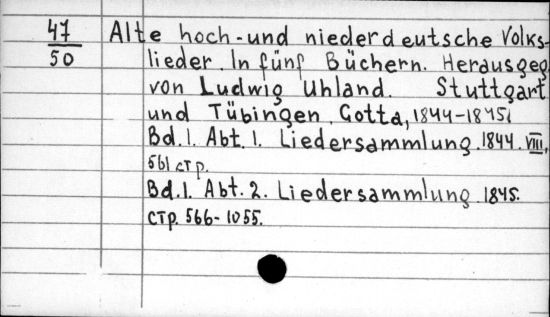 47 Alte hoch-und niederdeutsche Volks-
50 lieder. In fünf Büchern. Herausgeg.
von Ludwig Uhland. Stuttgart
und Tübingen, Cotta, 1844-1845.
Bd. 1. Abt. 1. Liedersammlung. 1844. VIII,
561 стр.
Bd. 1. Abt. 2. Liedersammlung 1845.
стр. 566-1055.